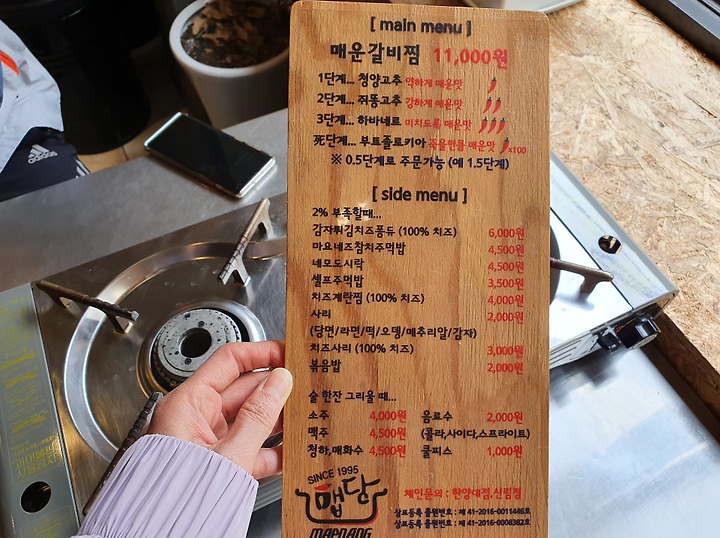 [ main menu ]
매운갈비찜 11,000원
1단계... 청양고추 약하게 매운맛
2단계... 쥐똥고추 강하게 매운맛
3단계... 하바네로 미치도록 매운맛
死단계... 부트졸로키아 죽을만큼 매운맛 x100
※ 0.5단계로 주문가능 (예 1.5단계)
[ side menu ]
2% 부족할때...
감자튀김치즈퐁듀 (100% 치즈) 6,000원
마요네즈참치주먹밥 4,500원
네모도시락 4,500원
셀프주먹밥 3,500원
치즈계란찜 (100% 치즈) 4,000원
사리 2,000원
(당면/라면/떡/오뎅/메추리알/감자)
치즈사리 (100% 치즈) 3,000원
볶음밥 2,000원
술 한잔 그리울 때...
소주 4,000원 음료수 2,000원
맥주 4,500원 (콜라,사이다,스프라이트)
청하,매화수 4,500원 쿨피스 1,000원
SINCE 1995
맵당
MAPDANG
체인문의 : 한양대점,신림점
상표등록 출원번호 : 제 41-2016-0011446호
상표등록 출원번호 : 제 41-2016-0008382호
adidas